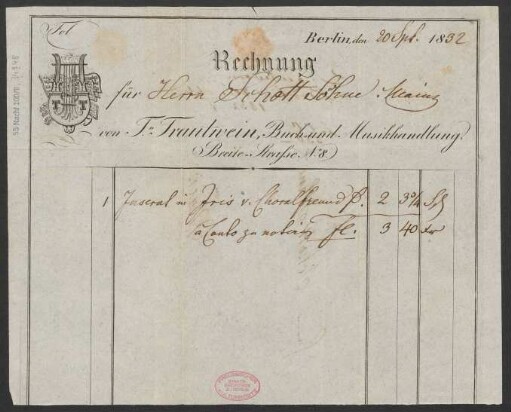 Fol
Berlin, den 20 Spt. 1832
Rechnung
für Herrn Schott Söhne Mainz
von T. Trautwein, Buch und Musikhandlung
(Breite-Strasse, No 8)
1 Inserat in Iris v. Choralfreund 2 3¾
à Conto zu notiren Fl. 3 40 xr